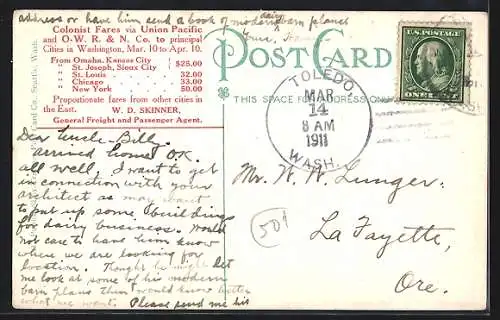 address or have him send a book of modern dairy barn planes
Yours,
Colonist Fares via Union Pacific
and O. W. R. & N. Co. to principal
Cities in Washington, Mar. 10 to Apr. 10.
From Omaha, Kansas City
" St. Joseph, Sioux City } $25.00
" St. Louis 32.00
" Chicago 33.00
" New York 50.00
Proportionate fares from other cities in
the East. W. D. SKINNER,
General Freight and Passenger Agent.
Card Co. Seattle, Wash.
Dear Uncle Bill,
arrived home O.K.
all well, I want to get
in connection with your
architect as may want
to put up some building
for dairy business. Would
not care to have him know
where we are looking for
location. Thought he might let
me look at some of his modern
barn plans then would know better
what we want. Please send me his
POST CARD
THIS SPACE FOR ADDRESS ONLY
TOLEDO,
MAR
14
8 AM
1911
WASH.
U.S. POSTAGE
ONE CENT
Mr. W. W. Lunger.
La Fayette,
Ore.
501